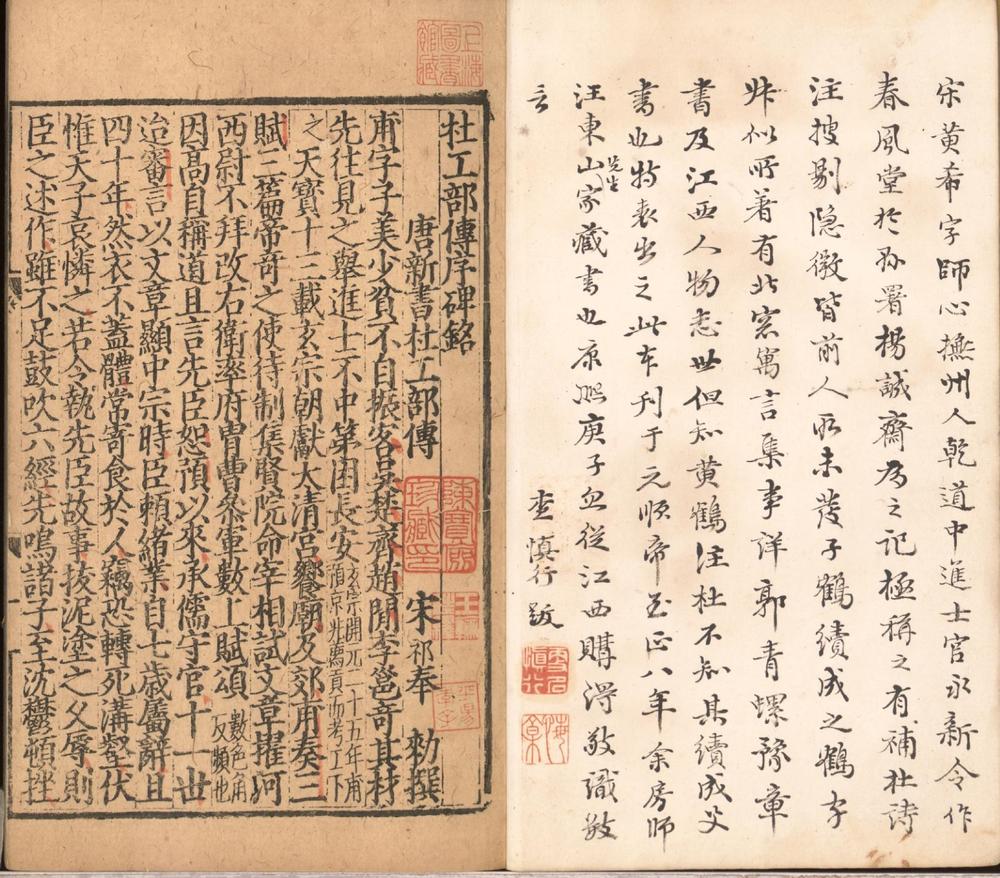 宋黄希字師心撫州人乾道中進士官永新令作
春風堂於縣署楊誠齋為之記極稱之有補杜詩
注搜剔隐微皆前人所未發子鶴續成之鶴字
叔似所著有北窓寓言集事詳郭青螺豫章
書及江西人物志世但知黄鶴注杜不知其續成父
書也特表出之此本刊于元順帝至正八年余房師
汪東山先生家藏書也康熙庚子血從江西購得敬識數
言
查慎行跋
上海圖書館藏
杜工部傳序碑銘
唐新書杜工部傳 宋祁奉 勑撰
甫字子美少貧不自振客吳楚齊趙間李邕奇其材
先往見之舉進士不中第困長安玄宗開元二十五年甫預京兆薦貢而考功下
之天寶十三載玄宗朝獻太清宮饗廟及郊甫奏三
賦三篇帝奇之使待制集賢院命宰相試文章擢河
西尉不拜改右衛率府胄曹參軍數上賦頌數色角反頻也
因高自稱道且言先臣恕預以來承儒守官十一世
迨審言以文章顯中宗時臣頼緒業自七歲屬辭且
四十年然衣不蓋體常寄食於人竊恐轉死溝壑伏
惟天子哀憐之若令執先臣故事拔泥塗之父辱則
臣之述作雖不足鼓吹六經先鳴諸子至沈鬱頓挫